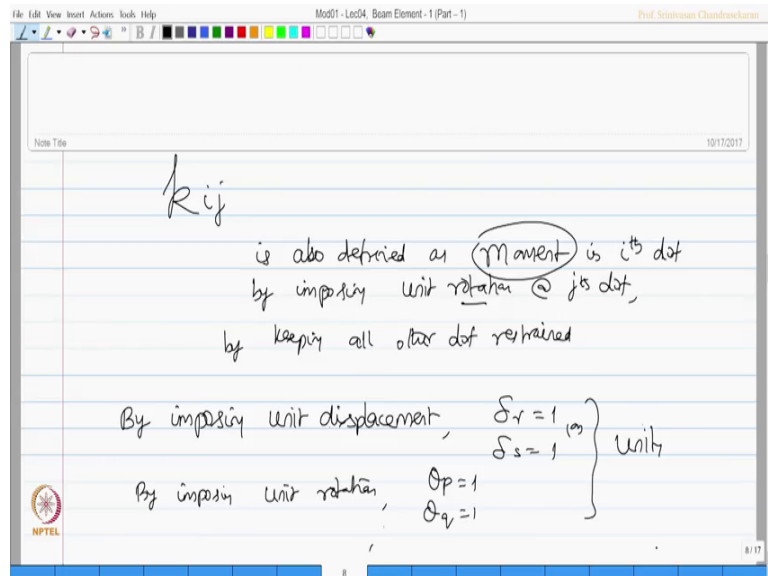 File Edit View Insert Actions Tools Help
Mod01 - Lec04, Beam Element - 1 (Part - 1)
Prof. Srinivasan Chandrasekaran
B I
Note Title
10/17/2017
kij
is also defined as moment in ith dof
by imposing unit rotation @ jth dof,
by keeping all other dof restrained
By imposing unit displacement, δr = 1 (or)
δs = 1
unity
By imposing unit rotation, θp = 1
θq = 1
NPTEL
8/17
8